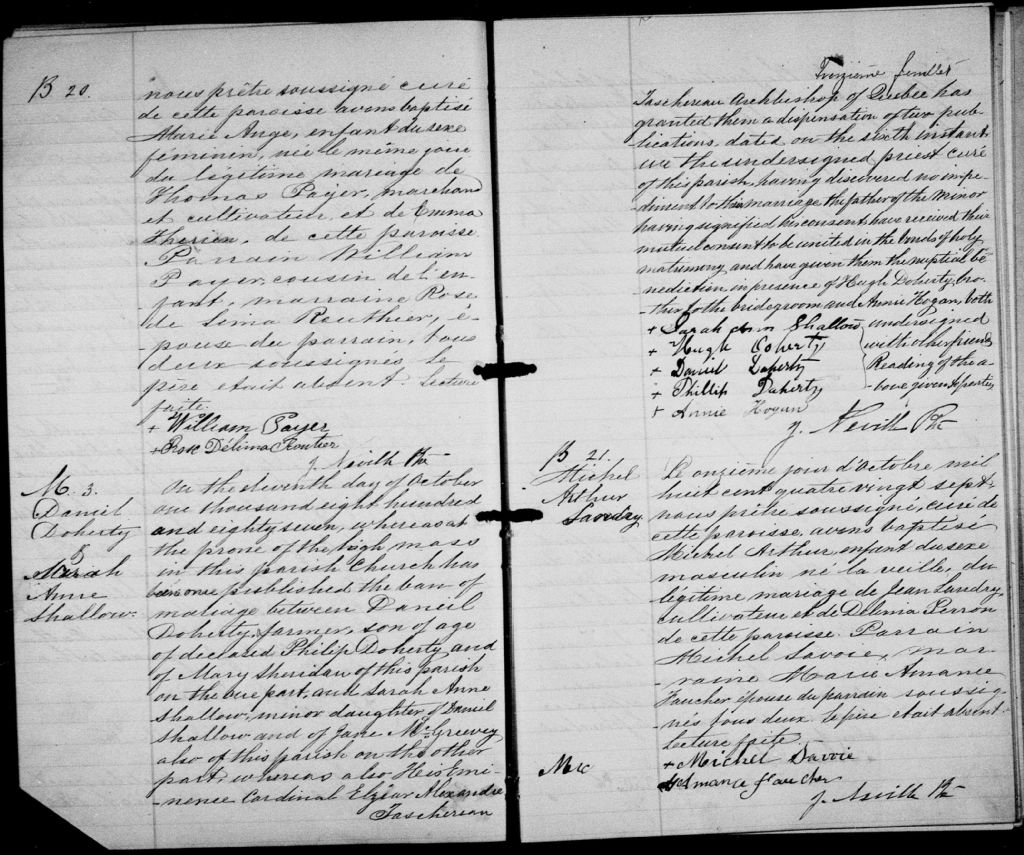 B 20.
nous prêtre soussigné curé
de cette paroisse avons baptisé
Marie Ange, enfant du sexe
féminin, née le même jour
du légitime mariage de
Thomas Payer, marchand
et cultivateur et de Emma
Therien, de cette paroisse
Parrain William
Payer, cousin de l'en-
fant, marraine Rose
de Lima Routhier, é-
pouse du parrain, tous
deux soussignés le
père etait absent. Lecture
faite.
+ William Payer
+ Rose Délima Routier
J. Neville Ptr
M. 3.
Daniel
Doherty
&
Sarah
Anne
Shallow.
On the eleventh day of October
one thousand eight hundred
and eighty seven, whereas at
the prone of the high mass
in this parish Church has
been once published the ban of
mariage between Daneil
Doherty, farmer, son of age
of declared Philip Doherty and
of Mary Sheridan of this parish
on the one part, and Sarah Anne
Shallow, minor daughter of Daniel
Shallow and of Jane Mc Greevey
also of this parish on the other
part, whereas also His Emi-
-nence Cardinal Elzéar Alexandre
Taschereau
Treizième feuillet
Taschereau Archbishop of Quebec has
granted them a dispensation of two pub-
lications, dated on the sixth instant.
we the undersigned priest curé
of this parish, having discovered no impe-
-diment to this marriage the father of the minor
having signified his consent, have received their
mutual consent to be united in the bonds of holy
matrimony and have given them the nuptial be-
nediction in presence of Hugh Doherty, bro-
ther to the bridegroom and Annie Hogan, both
+ Sarah Ann Shallow undersigned
+ Hugh Doherty with other friends
+ Daniel Doherty Reading of the a-
+ Phillip Doherty -bove given to parties
+ Annie Hogan
J. Neville Ptr
B 21.
Michel
Arthur
Landry
Le onzième jour d'Octobre mil
huit cent quatre vingt sept.
nous prêtre soussigné, curé de
cette paroisse, avons baptisé
Michel Arthur, enfant du sexe
masculin né la veille, du
légitime mariage de Jean Landry,
cultivateur et de Delima Perron
de cette paroisse. Parrain
Michel Savoie, mar-
raine Marie Amanda
Faucher épouse du parrain soussig-
nés tous deux le père etait absent.
Lecture faite
+ Michel Savoie
+ Amanda Faucher
J. Neville Ptr